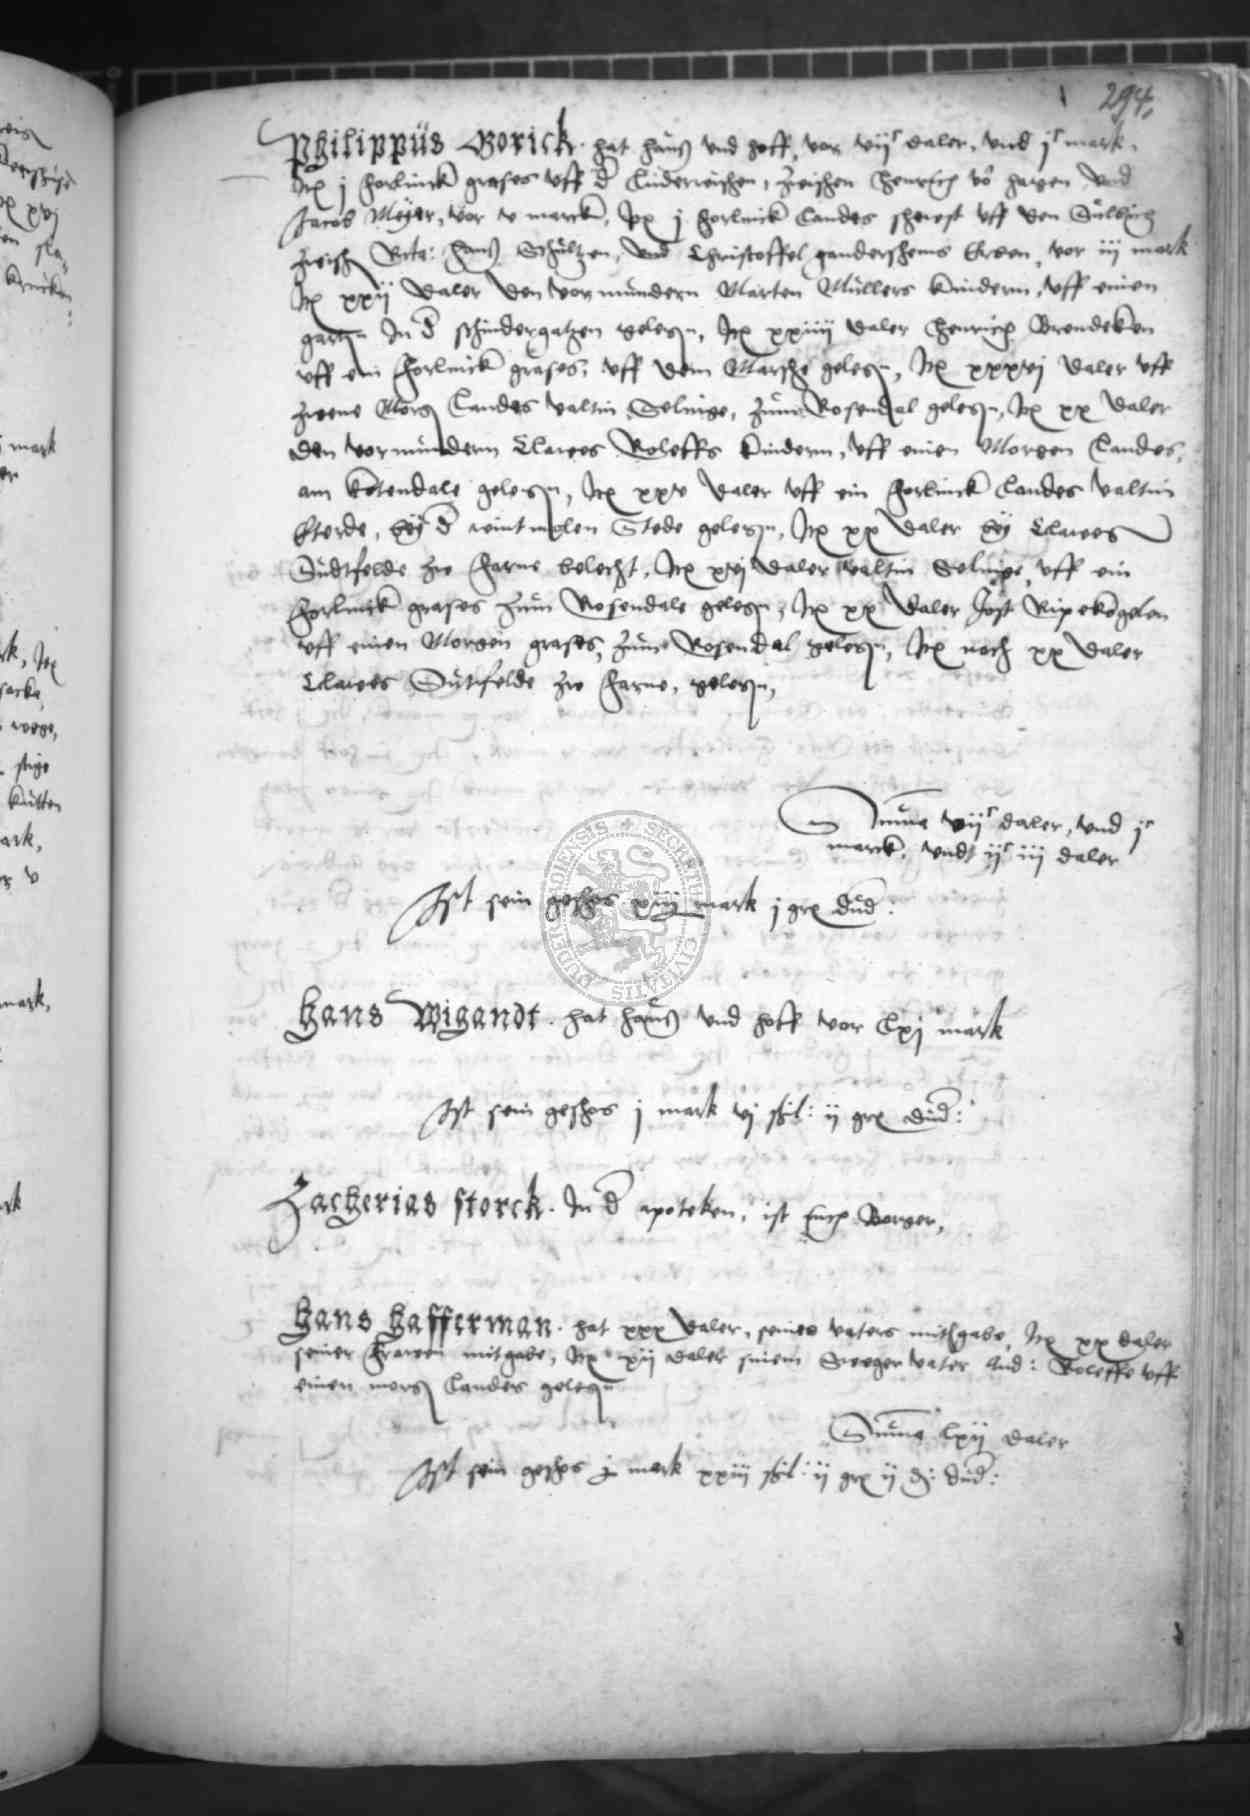 294.
Philippus Borick. hat hauß vnd hoff, vor vijc daler, vnd jc mark.
Itẽ j forlinck grases vff d Linderwischen, zwischen Henrich võ Hagen vnd
Jacob Meyer, vor v marck, Itẽ j forlinck Landes vff den Sulbig
zwisch Hans Schultzen, vnd Christoffel gandershems Erben, vor iij mark
Itẽ xxij daler den vormundern Marten Mullers kindern, vff einen
garten In d schindergatzen gelegen, Itẽ xxiiij daler Henrich Brendeken
vff ein forlinck grases, vff dem Marsche gelegen, Itẽ xxxvj daler vff
zweene Morg Landes valtin Selnige, zum Rosendal gelegen, Itẽ xx daler
den vormundern Clawes Roleffs kindern, vff einen Morgen Landes,
am ketendale gelegen, Itẽ xxv daler vff ein forlinck Landes valtin
bey d wintmolen Stede gelegen, Itẽ xx daler bey Clawes
Sudtfelde zw belecht, Itẽ xvj daler valtin Selnige, vff ein
forlinck grases zum Rosendale gelegen, Itẽ xx daler Jost Ripekogelen
vff einen Morgen grases, zume Rosendal gelegen, Itẽ noch xx daler
Clawes Sutfelde zw gelegen,
Suma vijc daler, vnd jc
marck, vndt ijc iij daler
Ist sein geschos xiij mark j grẽ dud.
Hans Wigandt. hat hauß vnd hoff vor Lxj mark
Ist sein geschos j mark vj schil: ij grẽ dud:
Zacherias storck. In d apoteken, ist Borger,
Hans Hafferman. hat xxx daler, seines vaters mithgabe, Itẽ xx daler
seiner frawen mitgabe, Itẽ xij daler sinem Sweger vater Lud: Roleffe vff
einen morg Landes gelegen
Suma Lxij daler
Ist sein geschos mark xxiij schil: ij grẽ ij d: dud:
SECRETUM CIVITATIS DUDERSTODENSIS